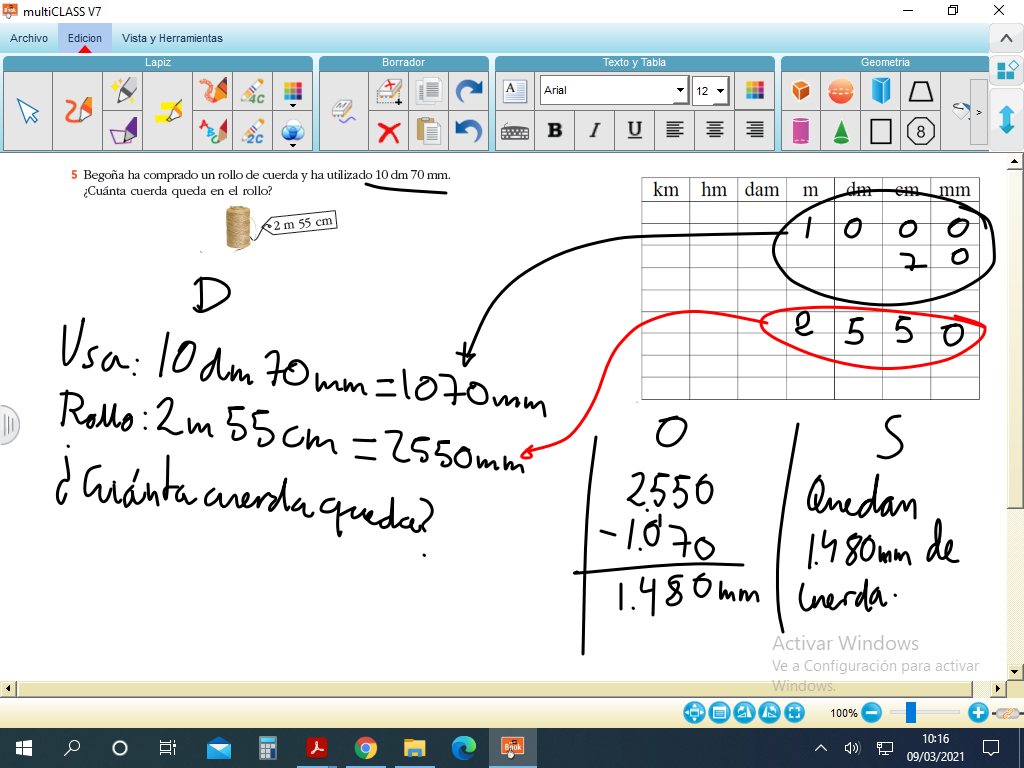 multiCLASS V7
Archivo Edicion Vista y Herramientas
Lapiz Borrador Texto y Tabla Geometria
4C A Arial 12
A B 2C B I U 8
5 Begoña ha comprado un rollo de cuerda y ha utilizado 10 dm 70 mm.
¿Cuánta cuerda queda en el rollo?
2 m 55 cm
km hm dam m dm cm mm
1 0 0 0
7 0
2 5 5 0
D
Usa: 10 dm 70 mm = 1070 mm
Rollo: 2 m 55 cm = 2550 mm
¿Cuánta cuerda queda?
O
2.550
- 1.070
1.480 mm
S
Quedan
1.480 mm de
cuerda.
Activar Windows
Ve a Configuración para activar
Windows.
100%
Book
10:16
09/03/2021